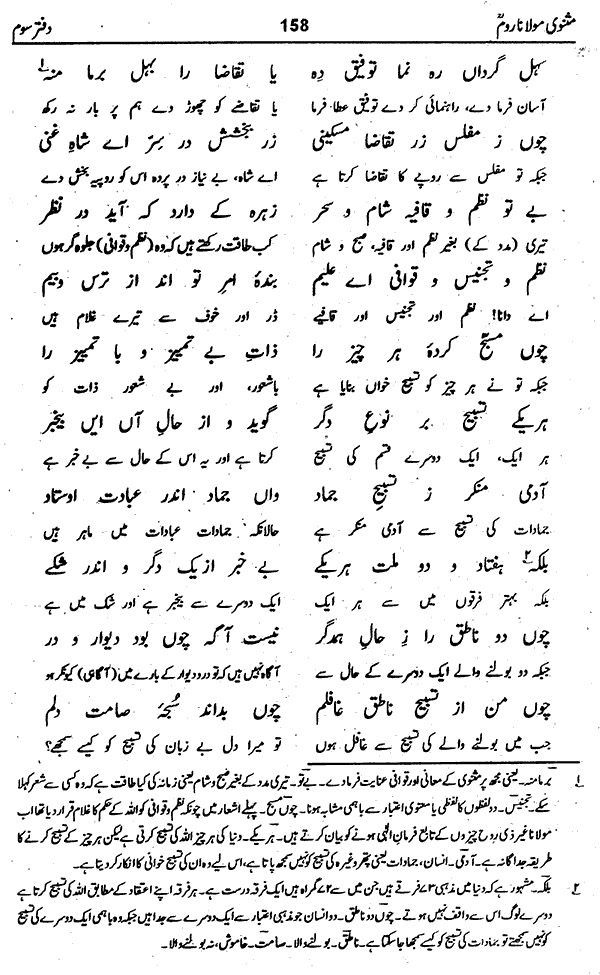 مثنوی مولانا رومؒ 158 دفتر سوم
سہل گرداں رہ نما توفیق دہ یا تقاضا را بہل برما منہ۱
آسان فرما دے، راہنمائی کر دے توفیق عطا فرما یا تقاضے کو چھوڑ دے ہم پر بار نہ رکھ
چوں ز مفلس زر تقاضا میکنی زر بخشش در سِر اے شاہِ غنی
جبکہ تو مفلس سے روپے کا تقاضا کرتا ہے اے شاہ، بے نیاز در پردہ اس کو روپیہ بخش دے
بے تو نظم و قافیہ شام و سحر زہرہ کے دارد کہ آید در نظر
تیری (مدد کے) بغیر نظم اور قافیہ، صبح و شام کب طاقت رکھتے ہیں کہ وہ (نظم و قوافی) جلوہ گر ہوں
نظم و تجنیس و قوافی اے علیم بندۂ امرِ تو اند از ترس و بیم
اے دانا! نظم اور تجنیس اور قافیے ڈر اور خوف سے تیرے غلام ہیں
چوں مسبّح کردۂ ہر چیز را ذاتِ بے تمییز و با تمییز را
جبکہ تو نے ہر چیز کو تسبیح خواں بنایا ہے باشعور، اور بے شعور ذات کو
ہر یکے تسبیح بر نوعِ دگر گوید و از حالِ آں ایں بیخبر
ہر ایک، ایک دوسرے قسم کی تسبیح کرتا ہے اور یہ اس کے حال سے بے خبر ہے
آدمی منکر ز تسبیحِ جماد واں جماد اندر عبادت اوستاد
جمادات کی تسبیح سے آدمی منکر ہے حالانکہ جمادات عبادات میں ماہر ہیں
بلکہ۲ ہفتاد و دو ملت ہر یکے بے خبر از یک دگر و اندر شکے
بلکہ بہتر فرقوں میں سے ہر ایک ایک دوسرے سے بیخبر ہے اور شک میں ہے
چوں دو ناطق را زِ حالِ ہمدگر نیست آگہ چوں بود دیوار و در
جبکہ دو بولنے والے ایک دوسرے کے حال سے آگاہ نہیں ہیں کہ تو در و دیوار کے بارے میں (آگاہی) کیونکر ہو
چوں من از تسبیح ناطق غافلم چوں بداند سُبحۂ صامت دلم
جب میں بولنے والے کی تسبیح سے غافل ہوں تو میرا دل بے زبان کی تسبیح کو کیسے سمجھے؟
۱ برما منہ۔ یعنی مجھ پر مثنوی کے معانی اور قوافی عنایت فرما دے۔ بے تو۔ تیری مدد کے بغیر صبح و شام یعنی زمانہ کی کیا طاقت ہے کہ وہ کسی سے شعر کہلا
سکے۔ تجنیس۔ دو لفظوں کا لفظی یا معنوی اعتبار سے باہمی مشابہ ہونا۔ چوں مسبّح۔ پہلے اشعار میں چونکہ نظم و قوافی کو اللہ کے حکم کا غلام قرار دیا تھا اب
مولانا غیر ذی روح چیزوں کے تابع فرمان الٰہی ہونے کو بیان کرتے ہیں۔ ہر یکے۔ دنیا کی ہر چیز اللہ کی تسبیح کرتی ہے لیکن ہر چیز کے تسبیح کرنے کا
طریقہ جداگانہ ہے۔ آدمی۔ انسان، جمادات یعنی پتھر وغیرہ کی تسبیح کو نہیں سمجھ پاتا ہے، اس لیے وہ ان کی تسبیح خوانی کا انکار کر دیتا ہے۔
۲ بلکہ۔ مشہور ہے کہ دنیا میں مذہبی ۷۳ فرقے ہیں جن میں سے ۷۲ گمراہ ہیں ایک فرقہ درست ہے۔ ہر فرقہ اپنے اعتقاد کے مطابق اللہ کی تسبیح کرتا ہے
دوسرے لوگ اس سے واقف نہیں ہوتے۔ چوں دو ناطق۔ دو انسان جو مذہبی اعتبار سے ایک دوسرے سے جدا ہیں جبکہ وہ باہمی ایک دوسرے کی تسبیح
کو نہیں سمجھتے تو جمادات کی تسبیح کو کیسے سمجھا جا سکتا ہے۔ ناطق۔ بولنے والا۔ صامت۔ خاموش، نہ بولنے والا۔